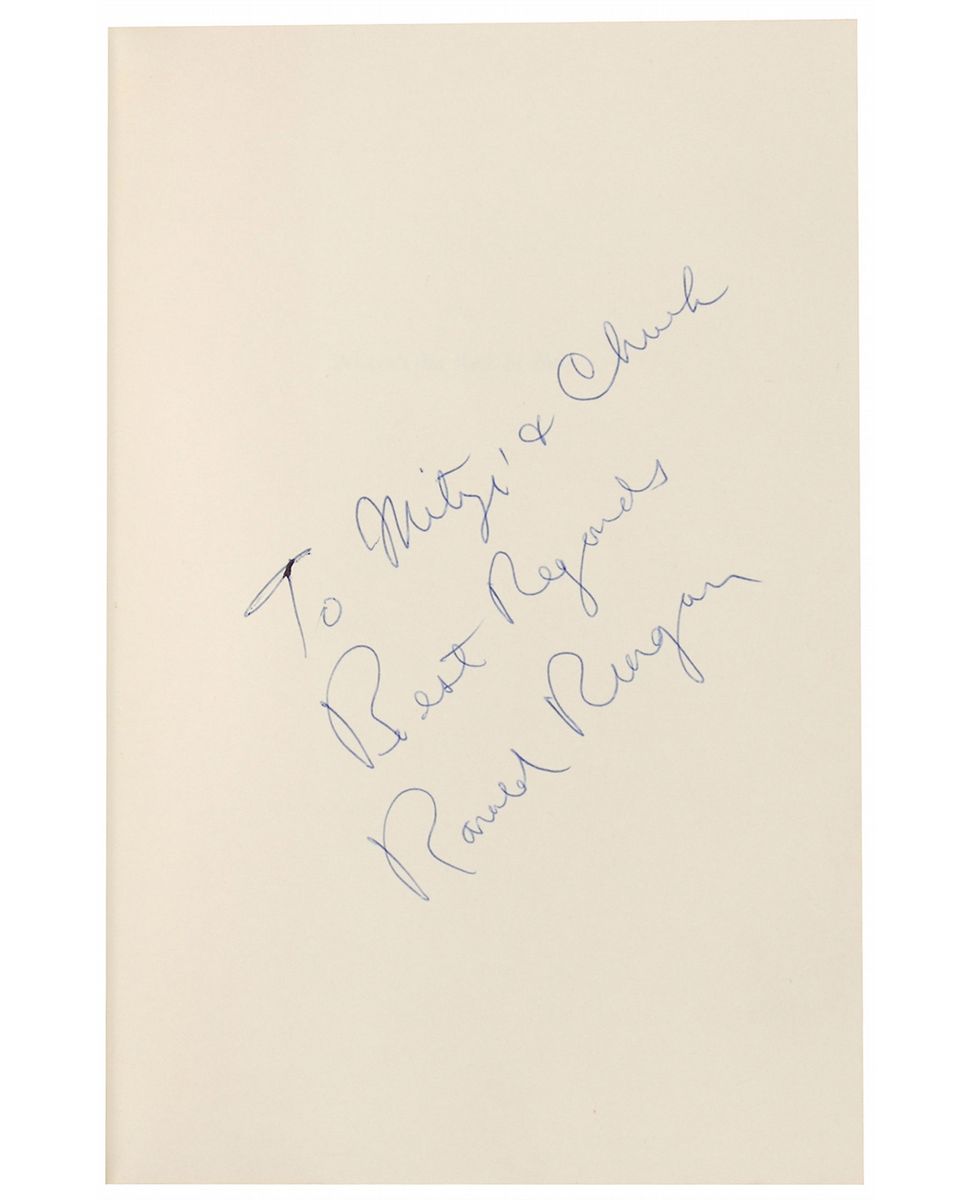 To Mitzi & Chuck
Best Regards
Ronald Reagan